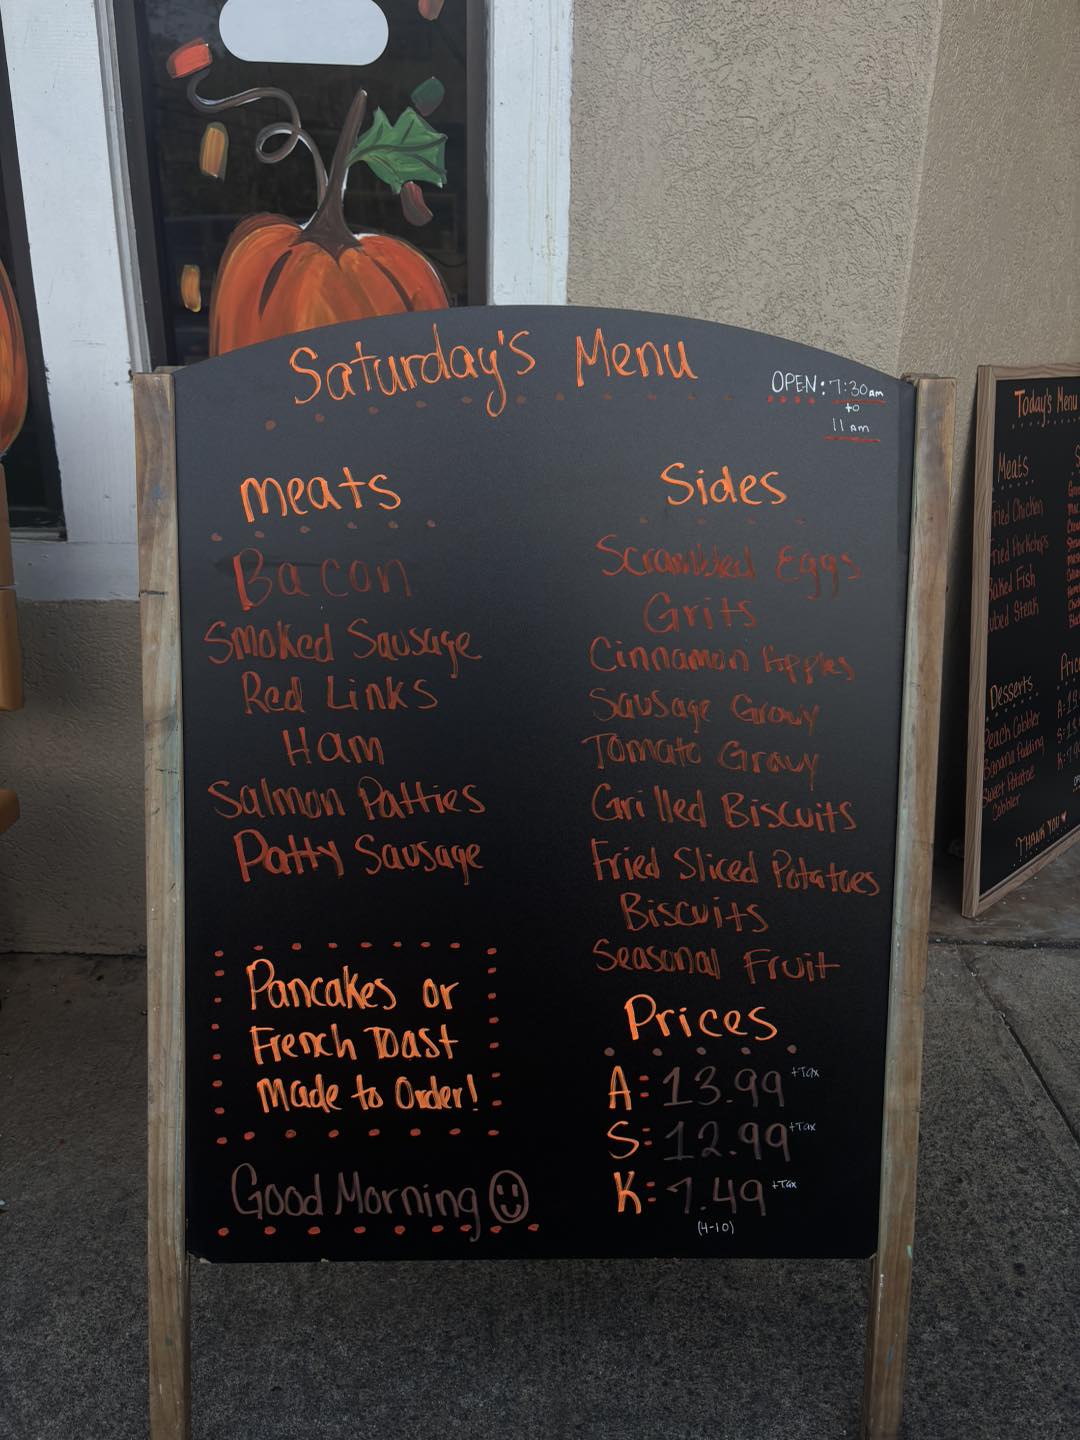 Saturday's Menu
OPEN: 7:30am
to
11 am
Meats
Bacon
Smoked Sausage
Red Links
Ham
Salmon Patties
Patty Sausage
Pancakes or
French Toast
Made to Order!
Good Morning
Sides
Scrambled Eggs
Grits
Cinnamon Apples
Sausage Gravy
Tomato Gravy
Grilled Biscuits
Fried Sliced Potatoes
Biscuits
Seasonal Fruit
Prices
A: 13.99 +Tax
S: 12.99 +Tax
K: 7.49 +Tax
(4-10)
Today's Menu
Meats
Fried Chicken
Fried Porkchops
Baked Fish
Cubed Steak
Desserts
Peach Cobbler
Banana Pudding
Sweet Potatoe
Cobbler
THANK YOU